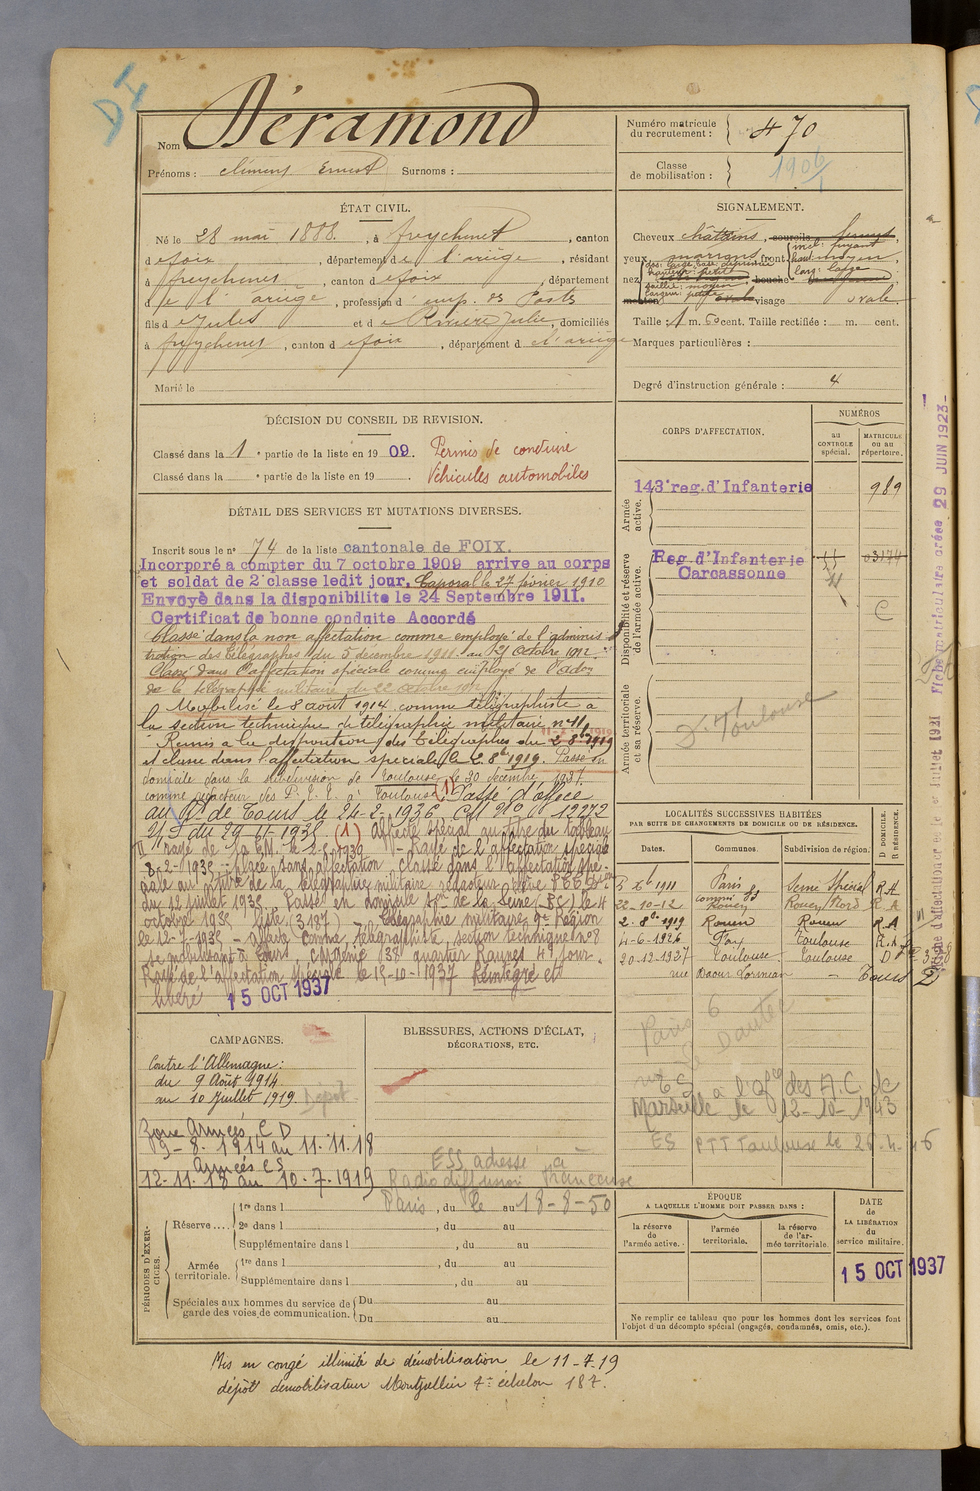 DI
Nom Déramond
Prénoms : Clément Ernest Surnoms :
Numéro matricule du recrutement : 470
Classe de mobilisation : 1906/1
ÉTAT CIVIL.
Né le 28 mai 1888, à freychenet, canton
d e foix, département d e l'ariège, résidant
à freychenet, canton d e foix, département
d e l'ariège, profession d' emp. des Postes
fils d e Jules et d e Rivière Julie, domiciliés
à freychenet, canton d e foix, département d e l'ariège
Marié le
SIGNALEMENT.
Cheveux châtains, sourcils
yeux marrons front incl: fuyant haut: moyen, larg: large
nez dos: large base déprimée hauteur: petite saillie: moyen largeur: petite bouche
menton ovale visage ovale
Taille : 1 m. 60 cent. Taille rectifiée : m. cent.
Marques particulières :
Degré d'instruction générale : 4
DÉCISION DU CONSEIL DE REVISION.
Classé dans la 1e partie de la liste en 1909. Permis de conduire
Classé dans la e partie de la liste en 19 . Véhicules automobiles
CORPS D'AFFECTATION.
NUMÉROS
au CONTROLE spécial.
MATRICULE OU AU répertoire.
Armée active.
143e reg. d'Infanterie 989
Disponibilité et réserve de l'armée active.
Reg. d'Infanterie 03174
Carcassonne
C
Armée territoriale et sa réserve.
Toulouse
DÉTAIL DES SERVICES ET MUTATIONS DIVERSES.
Inscrit sous le n° 74 de la liste cantonale de FOIX.
Incorporé à compter du 7 octobre 1909 arrive au corps
et soldat de 2e classe ledit jour. Caporal le 27 février 1910
Envoyé dans la disponibilité le 24 Septembre 1911.
Certificat de bonne conduite Accordé
Classé dans la non affectation comme employé de l'adminis
tration des télégraphes du 5 décembre 1911 au 21 Octobre 1912
Classé dans l'affectation spéciale comme employé de l'adon
de la télégraphie militaire du 22 octobre
Mobilisé le 8 août 1914 comme télégraphiste à
la section technique de télégraphie militaire n° 11,
Remis à la disposition des télégraphes du 2 8bre 1919
et classé dans l'affectation spéciale le 2. 8bre 1919. Passé en
domicile dans la subdivision de Toulouse le 30 décembre 1937
comme rédacteur des P.T.T. à Toulouse (1) Passé d'office
au de Tours le 24-2-1936 CM N° 12272
du 29-11-1935 (1) Affecté spécial au titre du tableau
II rayé de la Rayé de l'affectation spéciale
8-2-1935 - placé sans affectation classé dans l'affectation spé-
ciale au titre de la télégraphie militaire rédacteur élève
du 12 juillet 1935. Passé en domicile de la Seine (BC) le 4
octobre 1935 liste (3187) - télégraphie militaire 9e Région
le 12-7-1935 - affecté comme télégraphiste, section technique n° 8
se mobilisant à Tours, quartier Rannes 4e jour.
Rayé de l'affectation spéciale le 15-10-1937 Réintégré et
libéré 15 OCT 1937
LOCALITÉS SUCCESSIVES HABITÉES
PAR SUITE DE CHANGEMENTS DE DOMICILE OU DE RÉSIDENCE.
Dates. Communes. Subdivision de région. D DOMICILE. R RÉSIDENCE.
5 Xbre 1911 Paris Seine Spécial R.A
22-10-12 Rouen Rouen Nord R A
2-8bre-1919 Rouen Rouen R.A
4-6-1926 Foix Toulouse R.A
20-12-1937 Toulouse Toulouse D
rue Baour Lormian - Tours D
Paris 6
ES à l' des A.C. de
Marseille le 12-10-1943
ES PTT Toulouse le 26-4-46
CAMPAGNES.
Contre l'Allemagne :
du 9 Août 1914
au 10 Juillet 1919 Dépôt
Zone Armées CD
9-8-1914 au 11.11.18
Armées CS
12-11-18 au 10-7-1919
BLESSURES, ACTIONS D'ÉCLAT,
DÉCORATIONS, ETC.
ESS adresse à
Radiodiffusion Française
Paris le 18-8-50
PÉRIODES D'EXERCICES.
Réserve....
1re dans l , du au
2e dans l , du au
Supplémentaire dans l , du au
Armée territoriale.
1re dans l , du au
Supplémentaire dans l , du au
Spéciales aux hommes du service de garde des voies de communication.
Du au
Du au
ÉPOQUE
A LAQUELLE L'HOMME DOIT PASSER DANS :
la réserve de l'armée active.
l'armée territoriale.
la réserve de l'armée territoriale.
DATE de LA LIBÉRATION du service militaire.
15 OCT 1937
Ne remplir ce tableau que pour les hommes dont les services font
l'objet d'un décompte spécial (engagés, condamnés, omis, etc.).
Mis en congé illimité de démobilisation le 11-7-19
dépôt démobilisateur Montpellier 4e échelon 187.
Fiche matriculaire créée 29 JUIN 1923
Fiche d'affectation créée le Juillet 1931